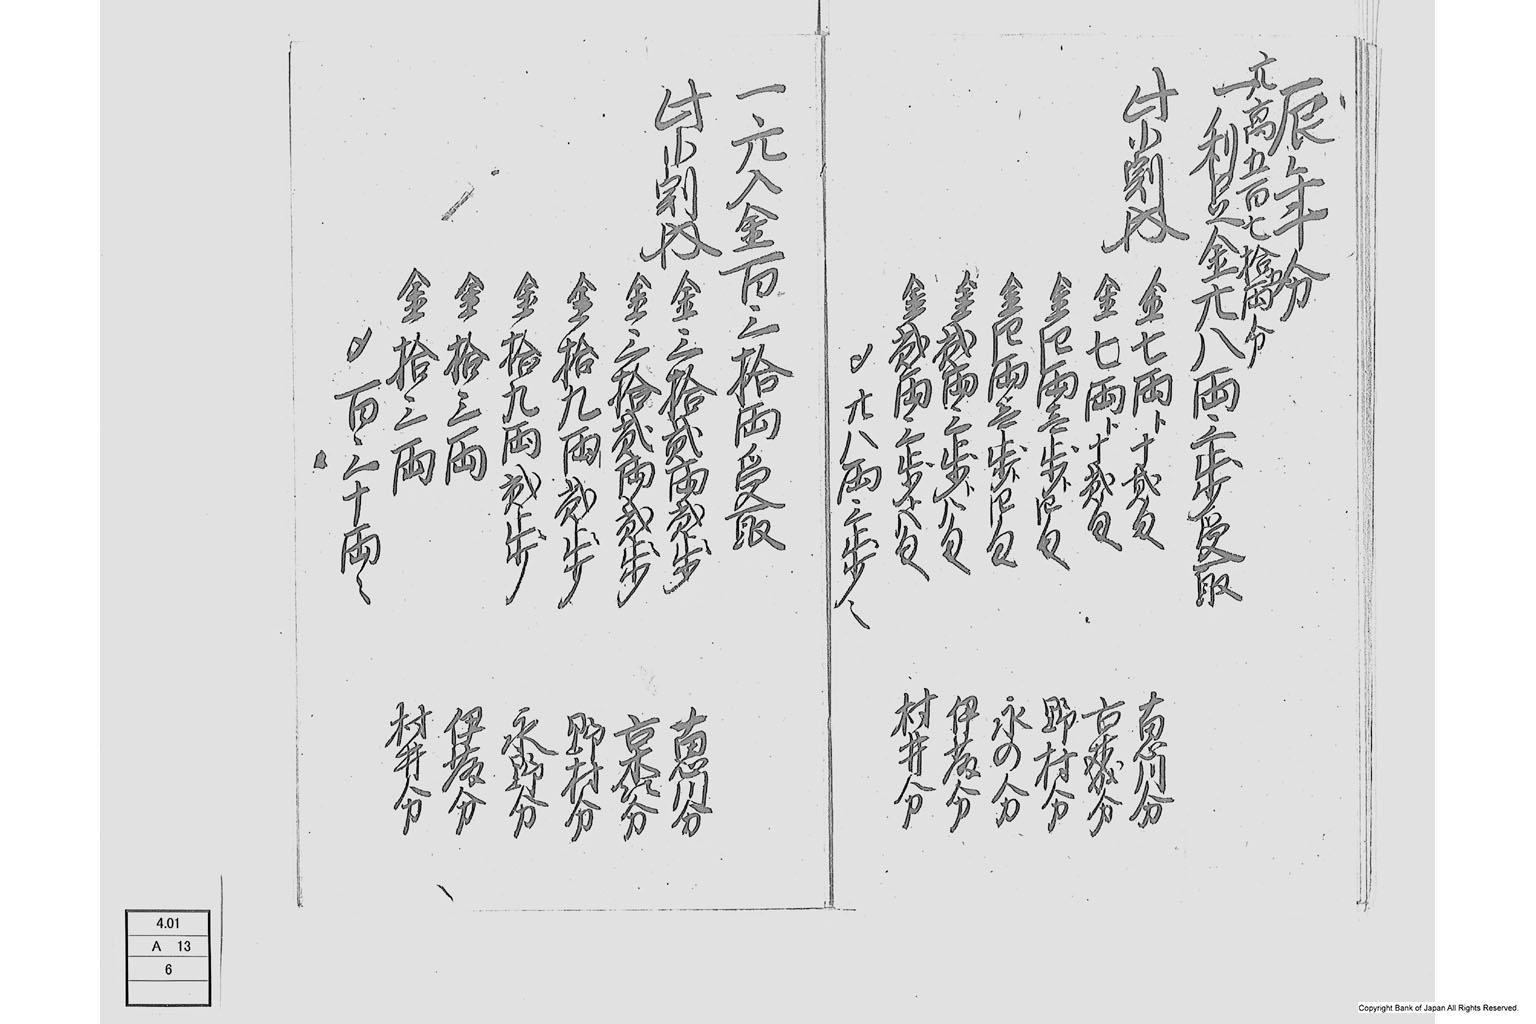 辰年分
元高五百七拾両分
一利足金六八両三歩受取
此小割
金七両ト十貳匁 恵川分
金七両ト十貳匁
金四両三歩ト四匁 野村分
金四両三歩ト四匁 永の分
金貳両三歩ト八匁 伊奈分
金貳両三歩ト八匁 村井分
〆六八両三歩
一元入金百三拾両受取
此小割
金三拾貳両貳歩 恵川分
金三拾貳両貳歩
金拾九両貳歩 野村分
金拾九両貳歩 永野分
金拾三両 伊奈分
金拾三両 村井分
〆百三十両
4.01
A 13
6
Copyright Bank of Japan All Rights Reserved.